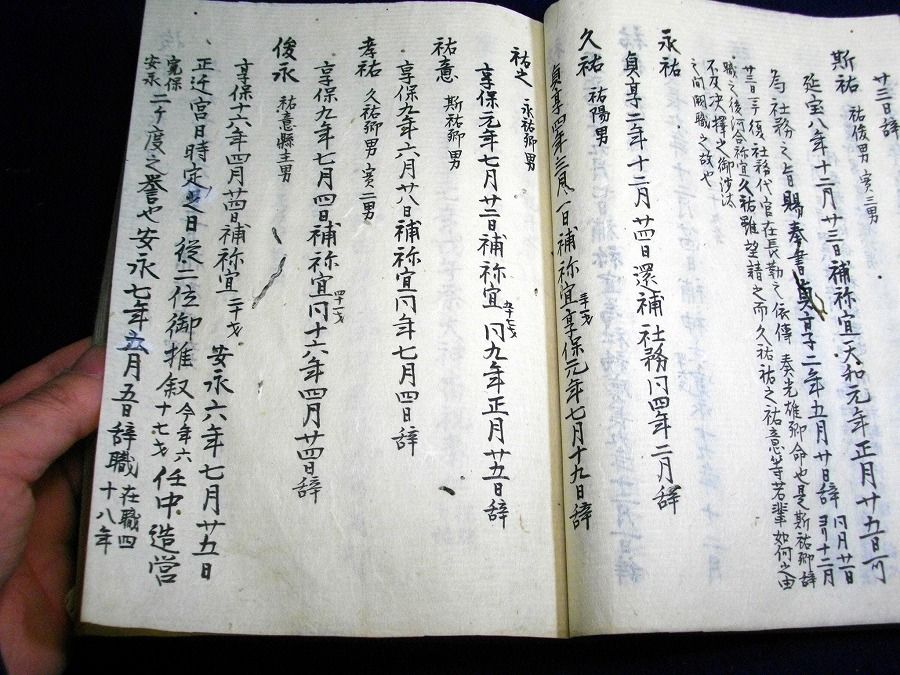 廿三日辞
斯祐 祐俊男 実三男
延宝八年十二月廿三日補祢宜天和元年正月廿五日可
為社務之旨賜奉書貞享二年五月廿日辞 同月廿一日 翌月十二月
廿三日手復社務代官在長勤之依傳 奏光雄卿命也是斯祐卿辞
職之後何合祢宜久祐雖望請之而久祐祐之祐意等若輩如何之由
不及决擇之御沙汰
之間闕職之故也
永祐
貞享二年十二月廿四日還補社務同四年二月辞
久祐 祐陽男
貞享四年三月一日補祢宜享保元年七月十九日辞
祐之 永祐卿男
享保元年七月廿二日補祢宜 同九年正月廿五日辞
祐意 斯祐卿男
享保九年六月廿八日補祢宜同年七月四日辞
孝祐 久祐卿男 実二男
享保九年七月四日補祢宜 四十二才 同十六年四月廿四日辞
俊永 祐意縣主男
享保十六年四月廿四日補祢宜 二十才 安永六年七月廿五日
正迁宮日時定之日従二位御推叙 今年六十七才 任中造営
寛保 安永 二ケ度之誉也安永七年五月五日辞職 在職四十八年